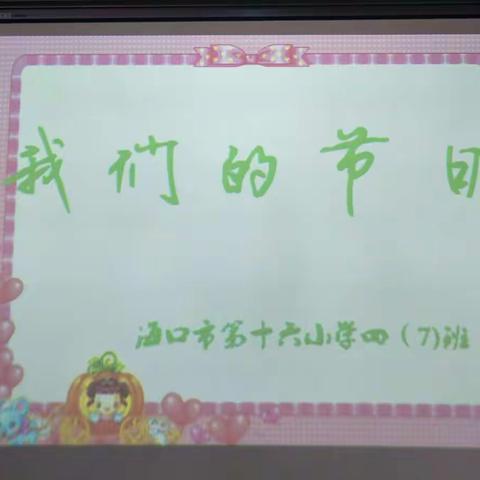 我们的节日
海口市第十六小学四（7)班